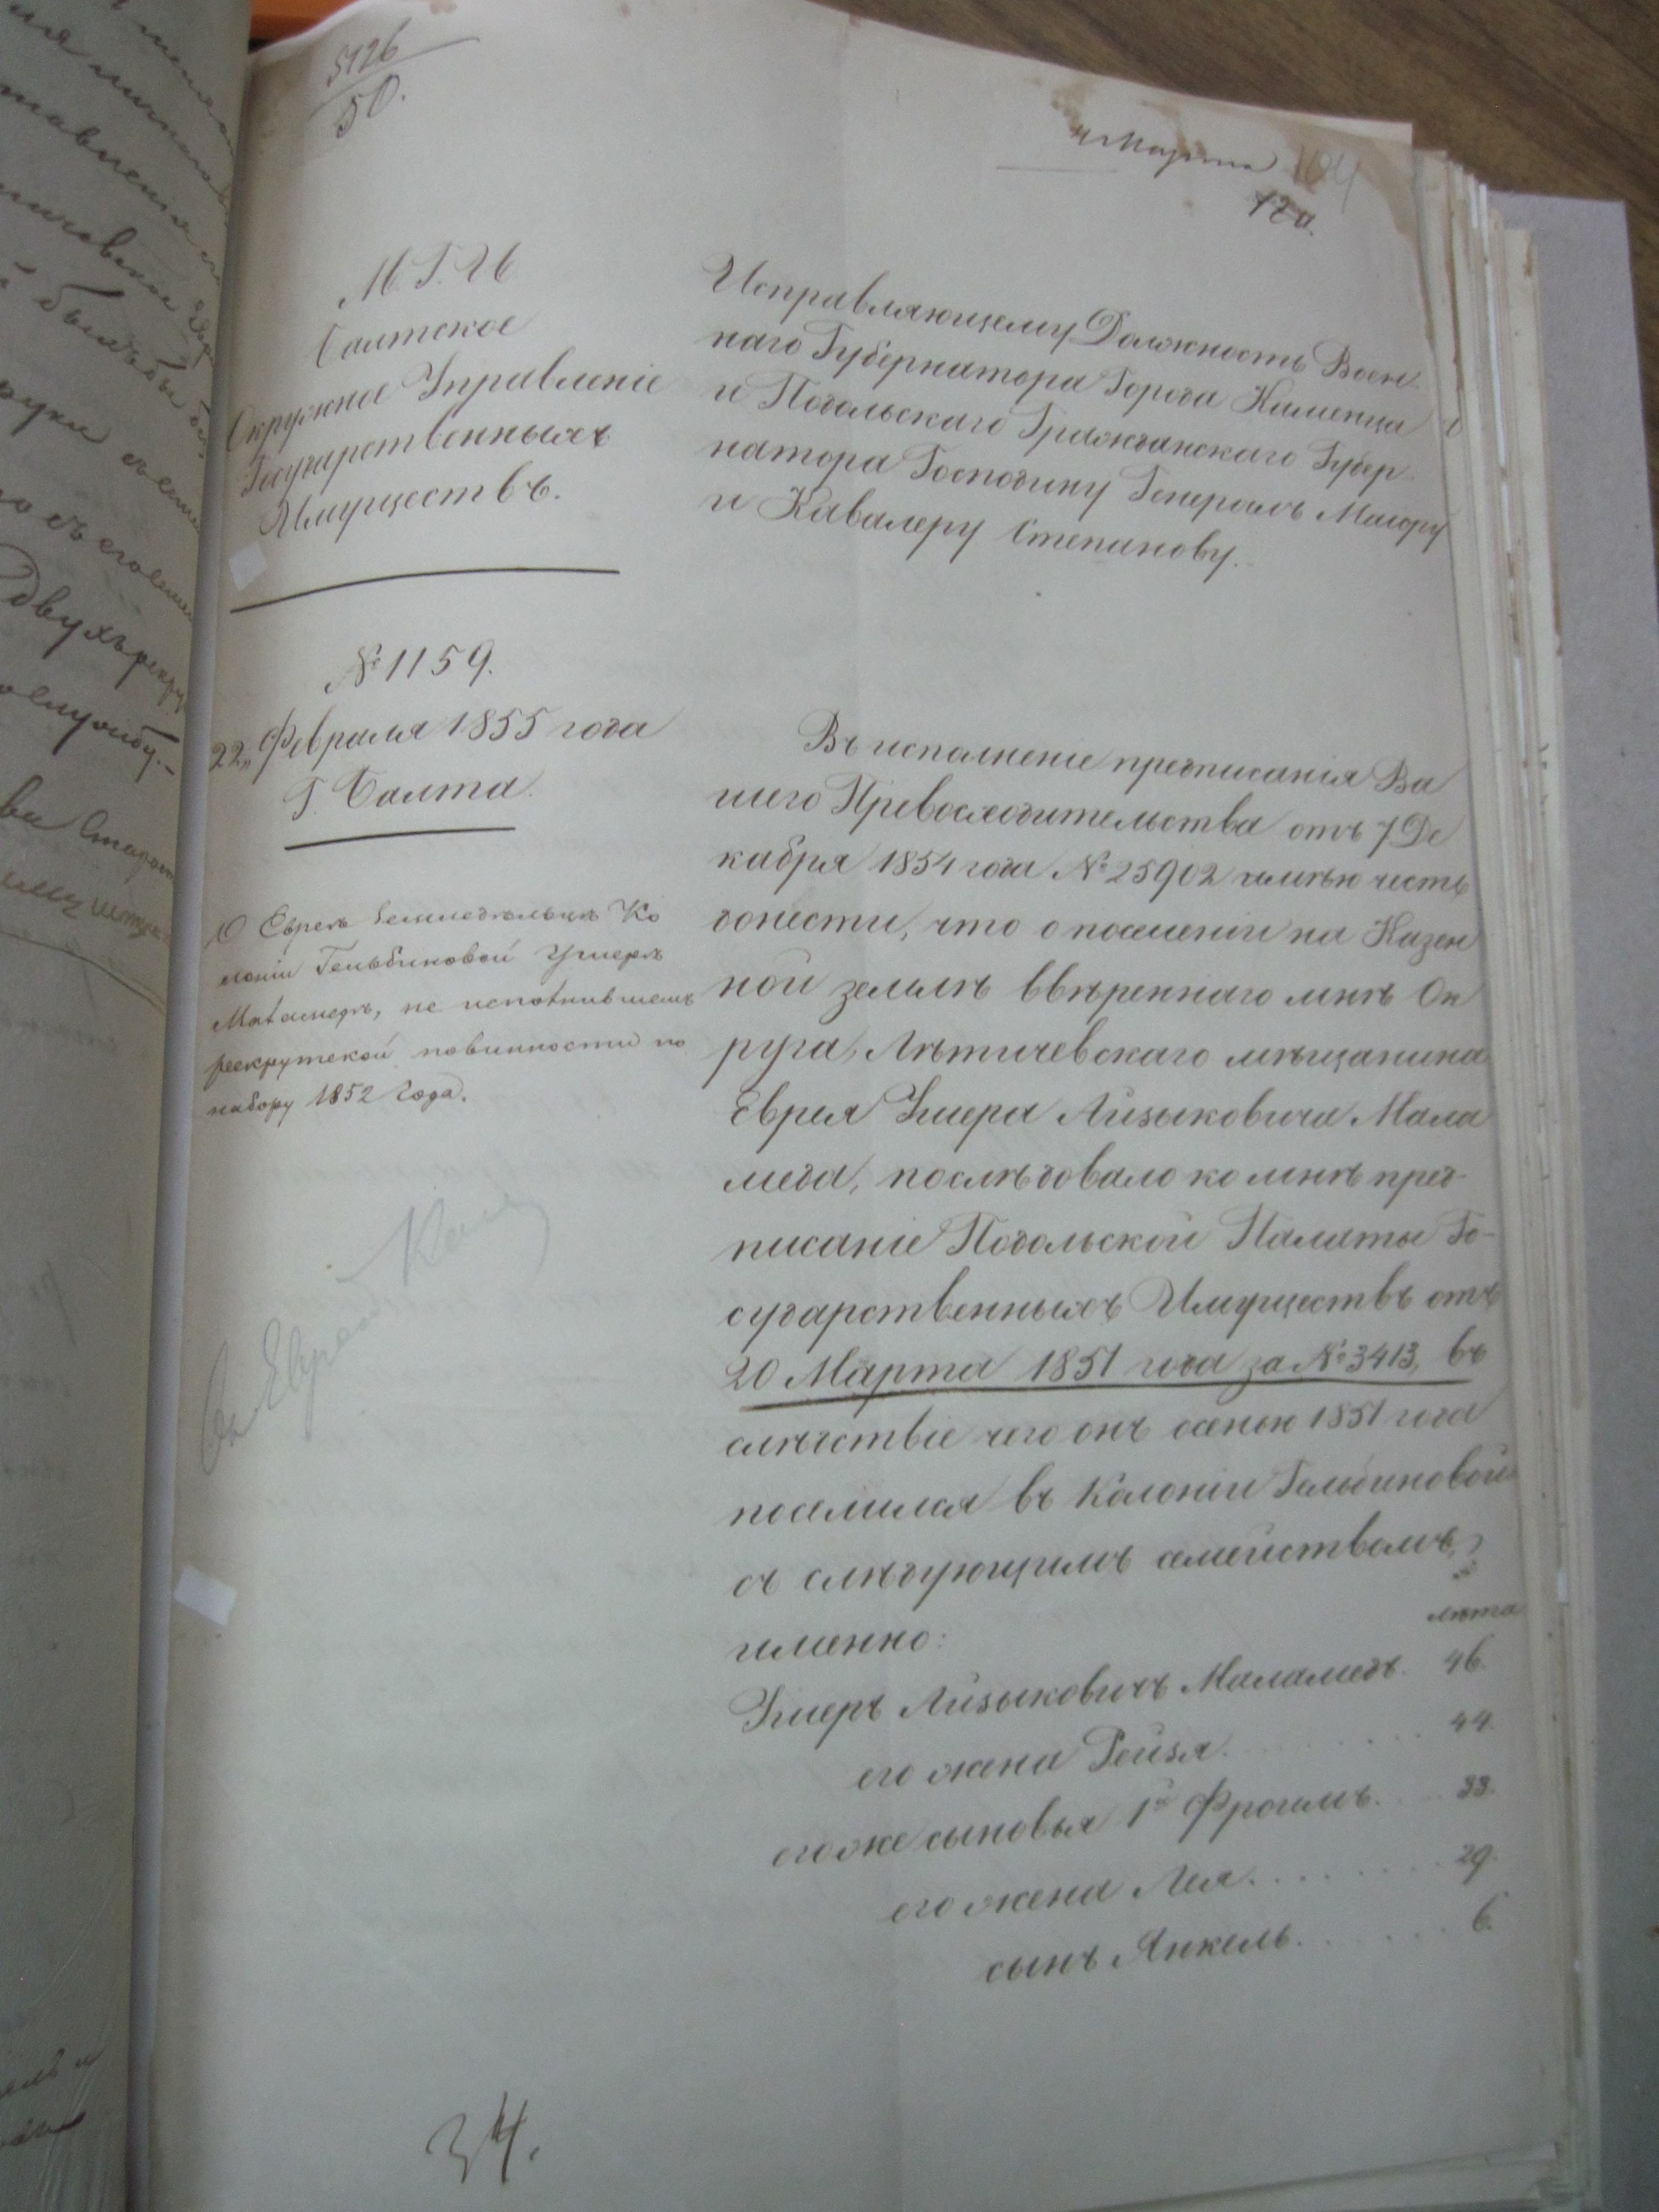 5126
50.
4 Марта
М. Г. И.
Балтское
Окружное Управленіе
Государственныхъ
Имуществъ.
№ 1159.
22„ Февраля 1855 года
Г. Балта.
О Евреѣ Земледѣльцѣ Ко
лоніи Гельбиновой Ушерѣ
Маламедѣ, не исполнившемъ
рекрутской повинности по
набору 1852 года.
Исправляющему Должность Воен
наго Губернатора Города Каменца
и Подольскаго Гражданскаго Губер
натора Господину Генералъ Маіору
и Кавалеру Степанову.
Въ исполненіе предписанія Ва
шего Превосходительства отъ 7 Де
кабря 1854 года № 25902 имѣю честь
донести, что о поселеніи на Казен
ной землѣ ввѣреннаго мнѣ Ок
руга, Лѣтичевскаго мѣщанина
Еврея Ушера Айзыковича Мала
меда, послѣдовало ко мнѣ пред-
писаніе Подольской Палаты Го-
сударственныхъ Имуществъ отъ
20 Марта 1851 года за № 3413, въ
слѣдствіе чего онъ осенью 1851 года
поселился въ Колоніи Гельбиновой
съ слѣдующимъ семействомъ,
именно:
лѣта
Ушеръ Айзыковичъ Маламедъ. 46.
его жена Рейзя. 44.
его же сыновья 1й Фроимъ. 33.
его жена Лея. 29.
сынъ Янкель. 6.
34.